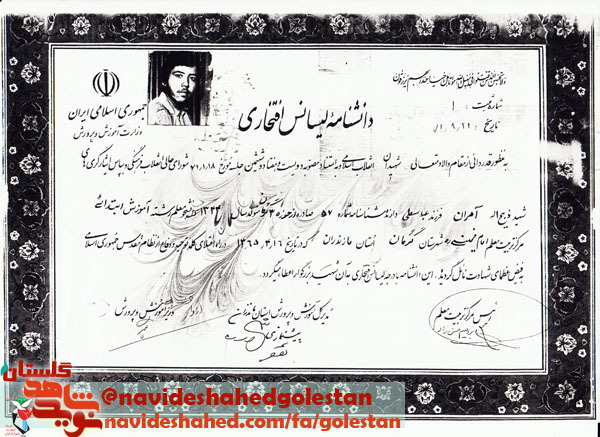 شماره ثبت: ۱
جمهوری اسلامی ایران
وزارت آموزش و پرورش
دانشنامهٔ لیسانس افتخاری
به منظور قدردانی از مقام والا و متعالی شهیدان انقلاب اسلامی و به استناد مصوبه دویست و هفتاد و ششمین جلسه مورخ ۷۱/۱/۱۸ شورای عالی انقلاب فرهنگی و به پاس ایثارگری های
شهید ذبیح اله آهران فرزند عباسعلی دارنده شناسنامه شماره ۵۷ صادره از حوزه متولد سال ۱۳۴۴ دانشجو معلم رشته آموزش ابتدائی
مرکز تربیت معلم امام خمینی ره شهرستان گرگان استان مازندران که در تاریخ ۱۳۶۵.۴.۱۶ در راه اعتلای کلمه توحید و دفاع از نظام مقدس جمهوری اسلامی
به فیض عظمای شهادت نائل گردید. این دانشنامه با درجه لیسانس افتخاری به آن شهید بزرگوار اعطا میگردد.
رئیس مرکز تربیت معلم
مدیر کل آموزش و پرورش استان مازندران
وزیر آموزش و پرورش
نوید شاهد
گلستان
@navideshahedgolestan
navideshahed.com/fa/golestan